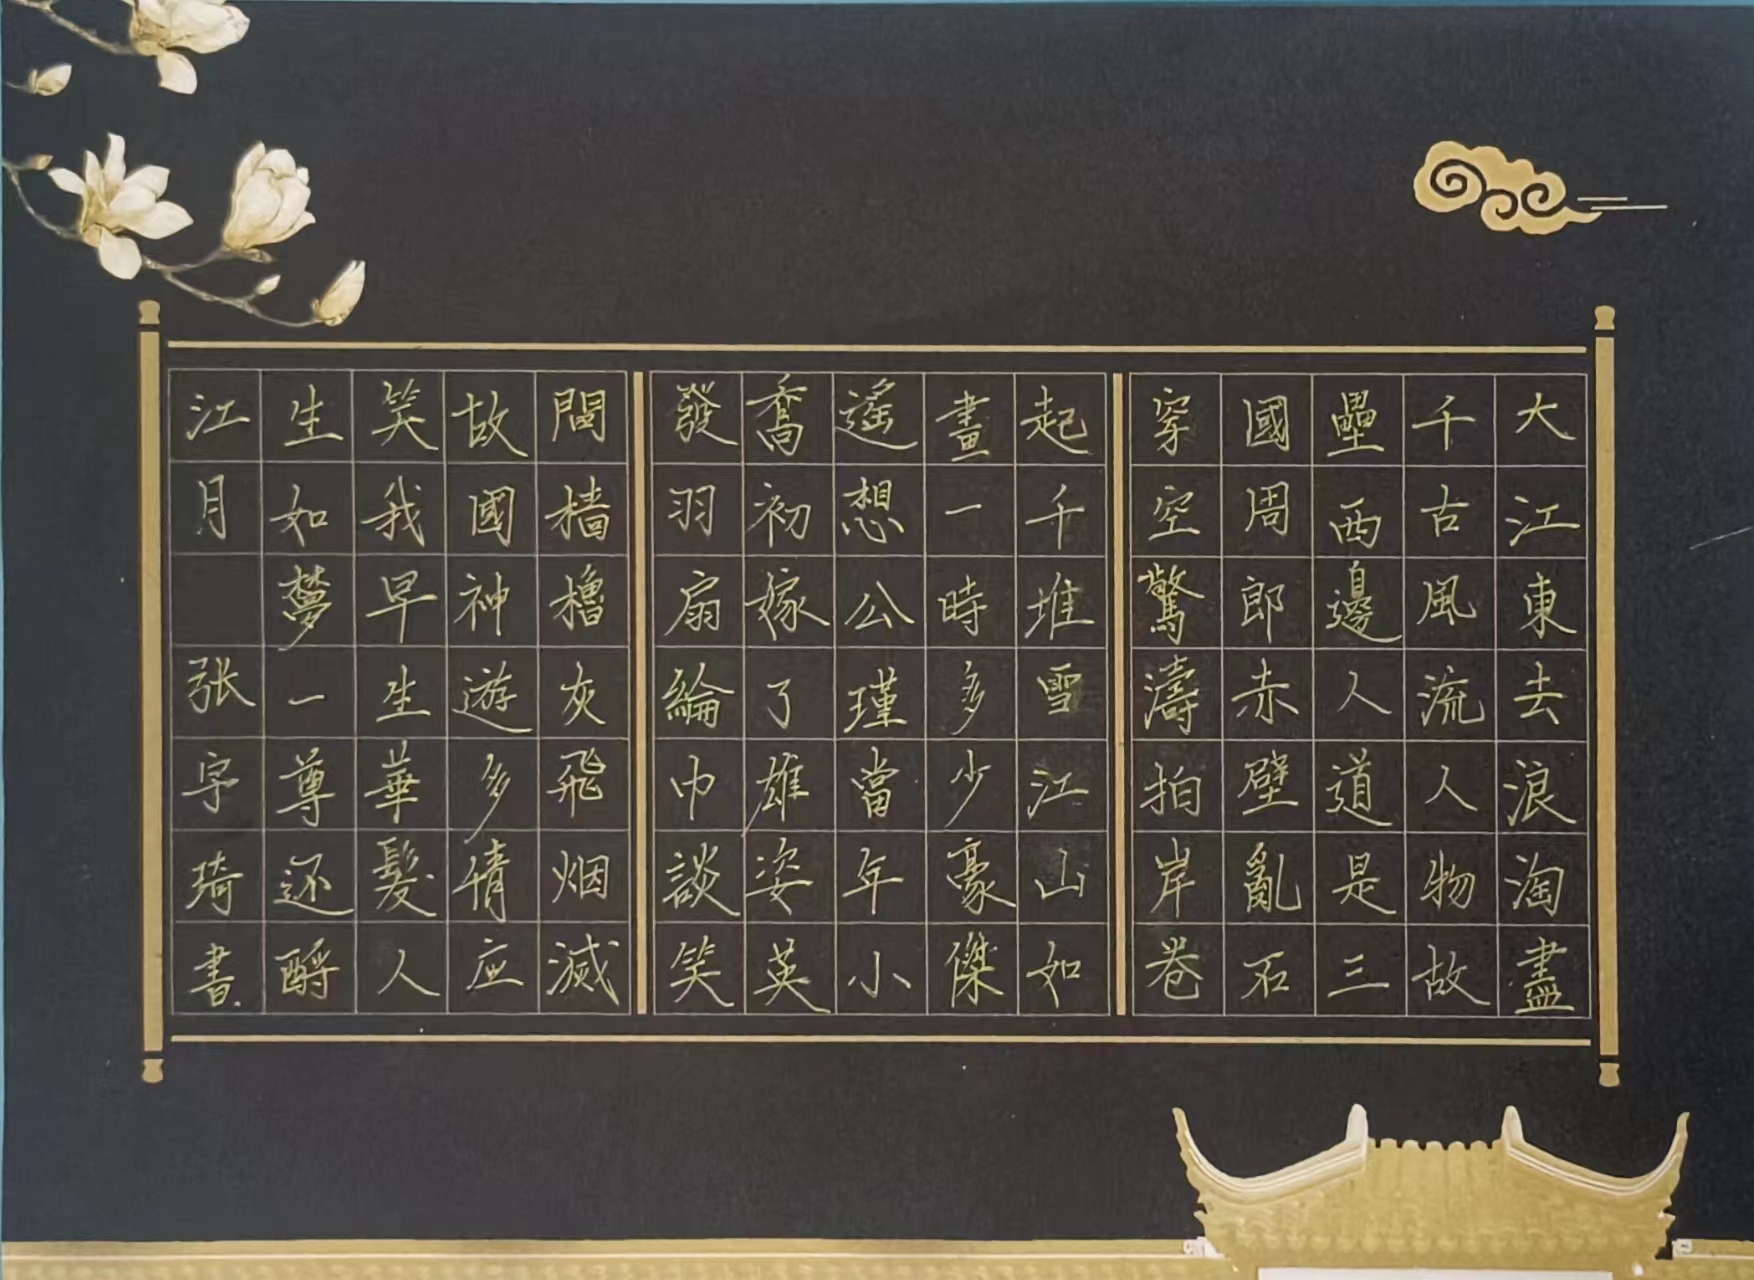 大江東去浪淘盡
千古風流人物故
壘西邊人道是三
國周郎赤壁亂石
穿空驚濤拍岸卷
起千堆雪江山如
畫一時多少豪傑
遙想公瑾當年小
喬初嫁了雄姿英
發羽扇綸巾談笑
間檣櫓灰飛烟滅
故國神遊多情应
笑我早生華髮人
生如夢一尊还酹
江月 张字琦書